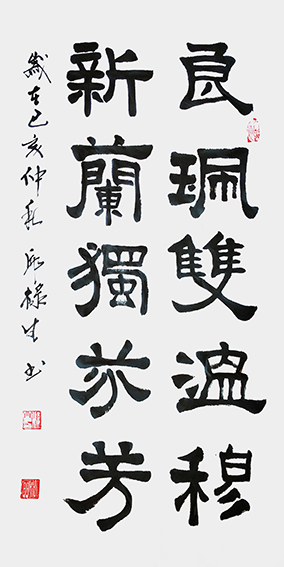 良珮雙溫穆
新蘭獨芬芳
歲在己亥仲生書